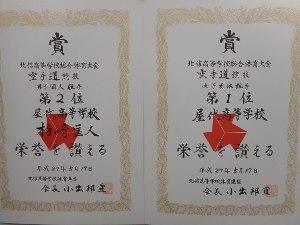 賞
北信高等学校総合体育大会
空手道競技
男子個人組手
第2位
屋代高等学校
栄誉を讃える
平成27年5月17日
北信高等学校体育連盟
会長 小出邦宜
賞
北信高等学校総合体育大会
空手道競技
女子団体組手
第1位
屋代高等学校
栄誉を讃える
平成27年5月17日
北信高等学校体育連盟
会長 小出邦宜